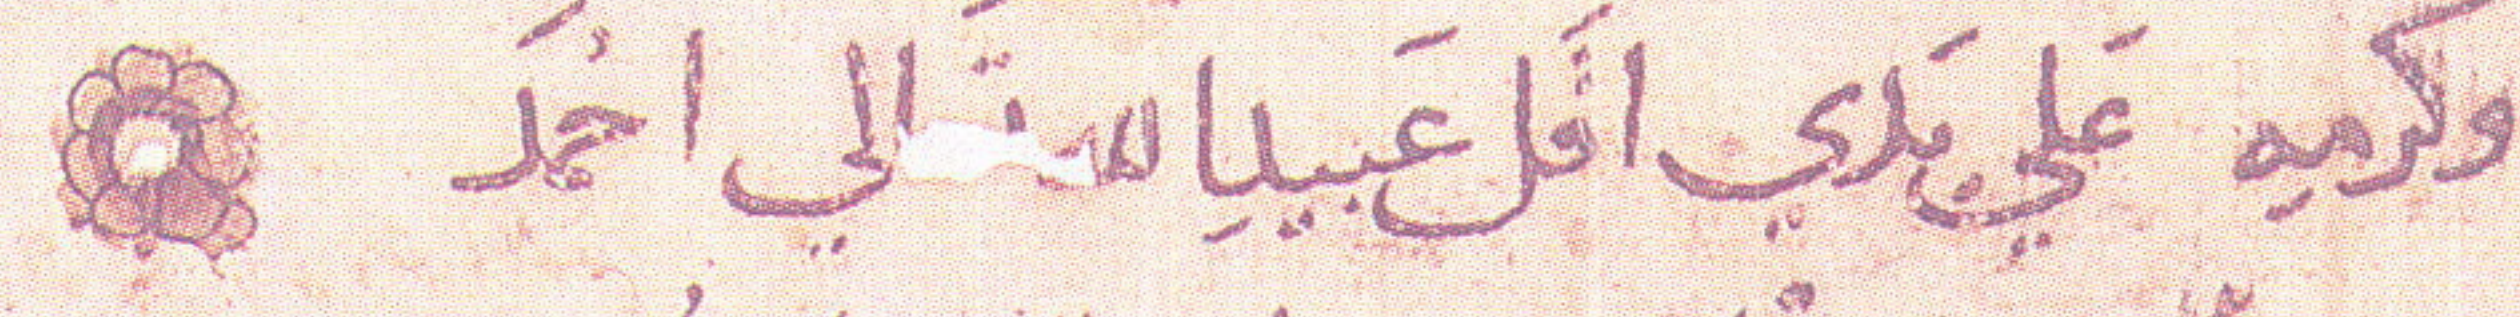 وكرمه علي يدي اقل عبيد الله تعالي احمد